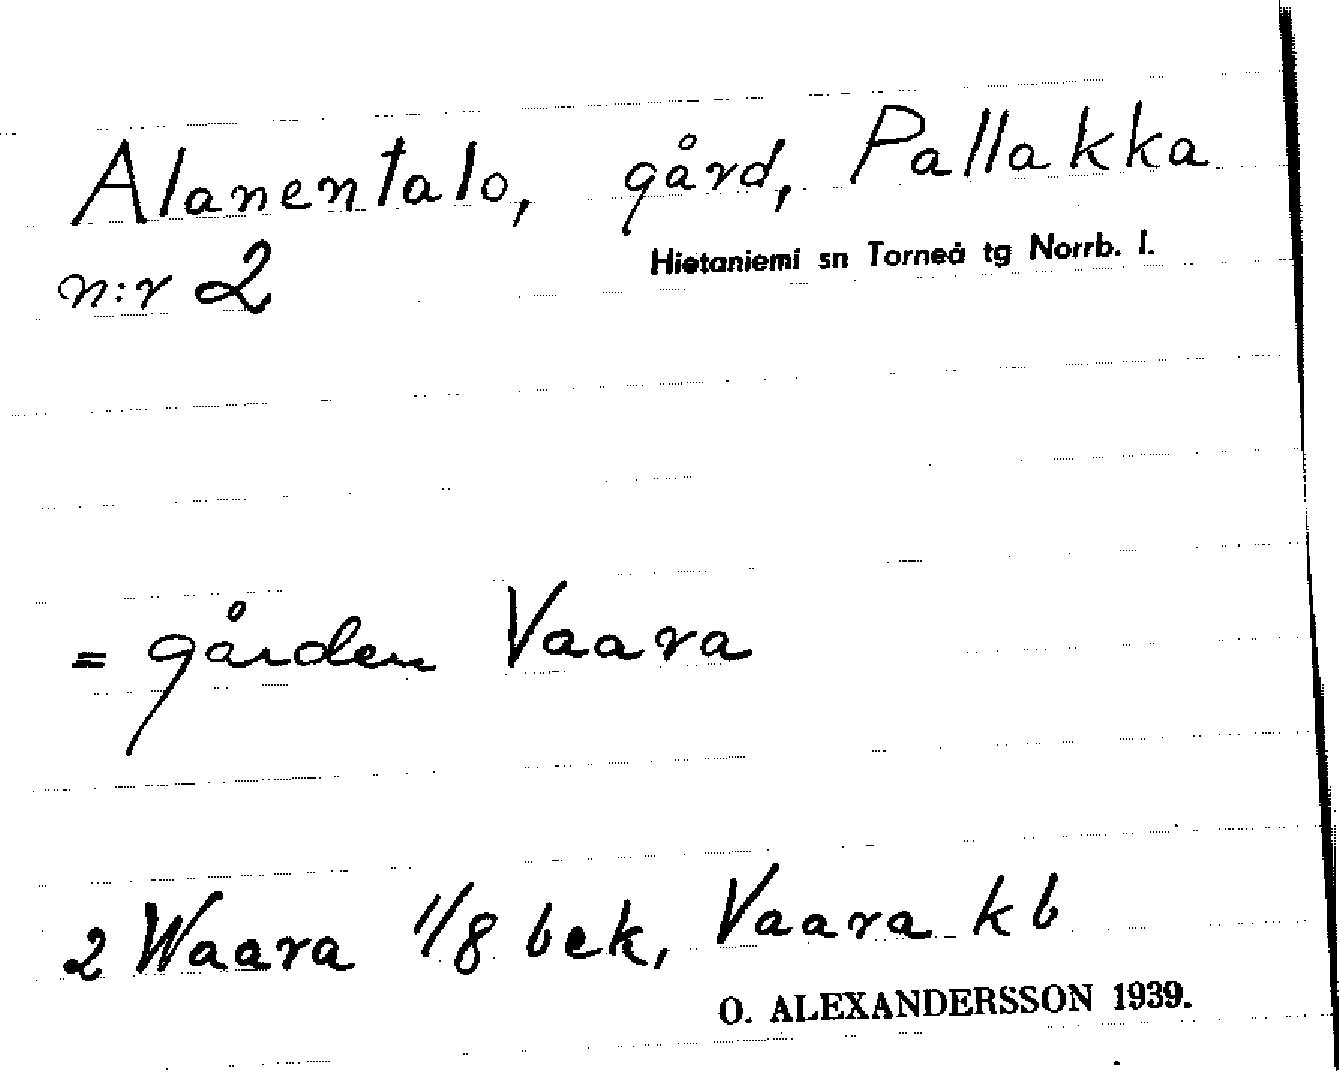 Alanentalo, gård, Pallakka
n:r 2 Hietaniemi sn Torneå tg Norrb. l.
= gården Vaara
2 Waara 1/8 bek, Vaara kb
O. ALEXANDERSSON 1939.